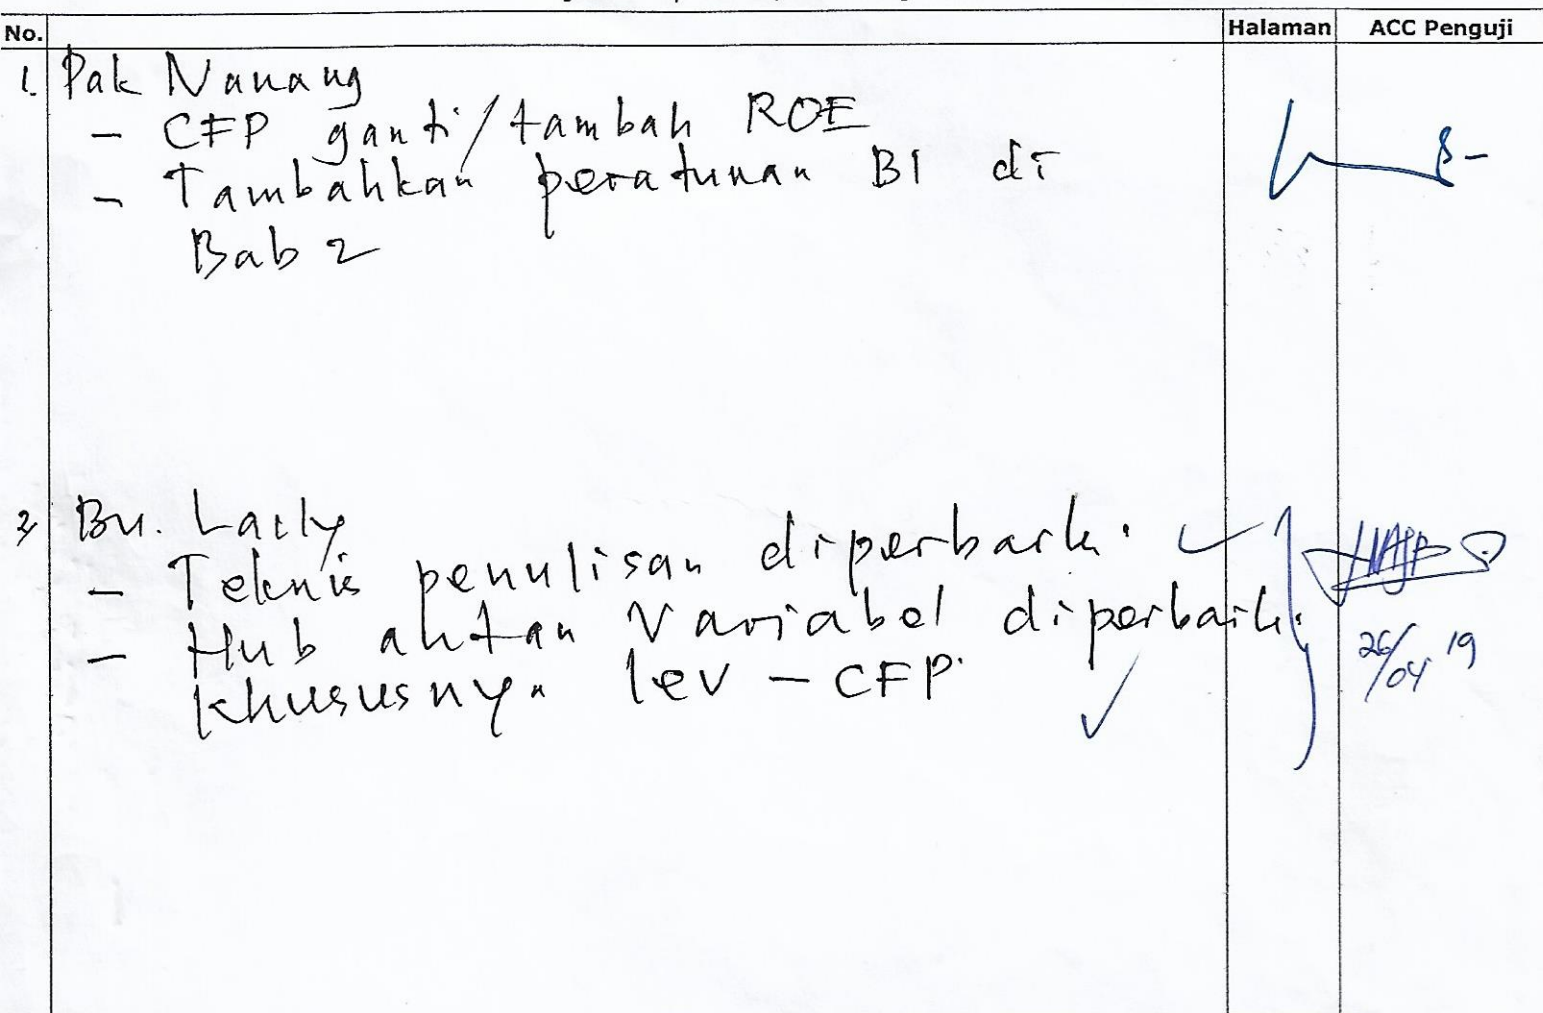 No. Halaman ACC Penguji
1. Pak Nanang
- CFP ganti/tambah ROE
- Tambahkan peraturan BI di
Bab 2
2. Bu. Laily
- Teknis penulisan diperbaiki.
- Hub antar Variabel diperbaiki.
khususnya lev - CFP.
26/04 19